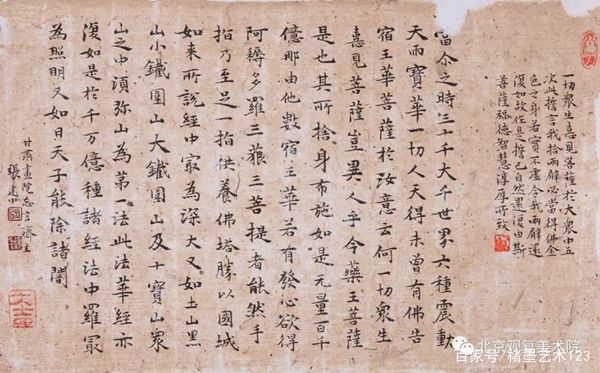 一切衆生憙見菩薩於大衆中立
次此誓言我捨兩臂必當得佛金
色之身若實不虛令我兩臂還
復如故作是誓已自然還復由斯
菩薩福德智慧淳厚所致
當尒之時三千大千世界六種震動
天雨寶華一切人天得未曾有佛告
宿王華菩薩於汝意云何一切衆生
憙見菩薩豈異人乎今藥王菩薩
是也其所捨身布施如是無量百千
億那由他數宿王華若有發心欲得
阿耨多羅三藐三菩提者能然手
指乃至足一指供養佛塔勝以國城
如來所說經中冣為深大又如土山黑
山小鐵圍山大鐵圍山及十寶山衆
山之中須弥山為第一法此法華經亦
復如是於千万億種諸經法中羅冣
為照明又如日天子能除諸闇
甘肅畫院忘言齋主
張建中
北京观复美术院
百家号/楮墨艺术123